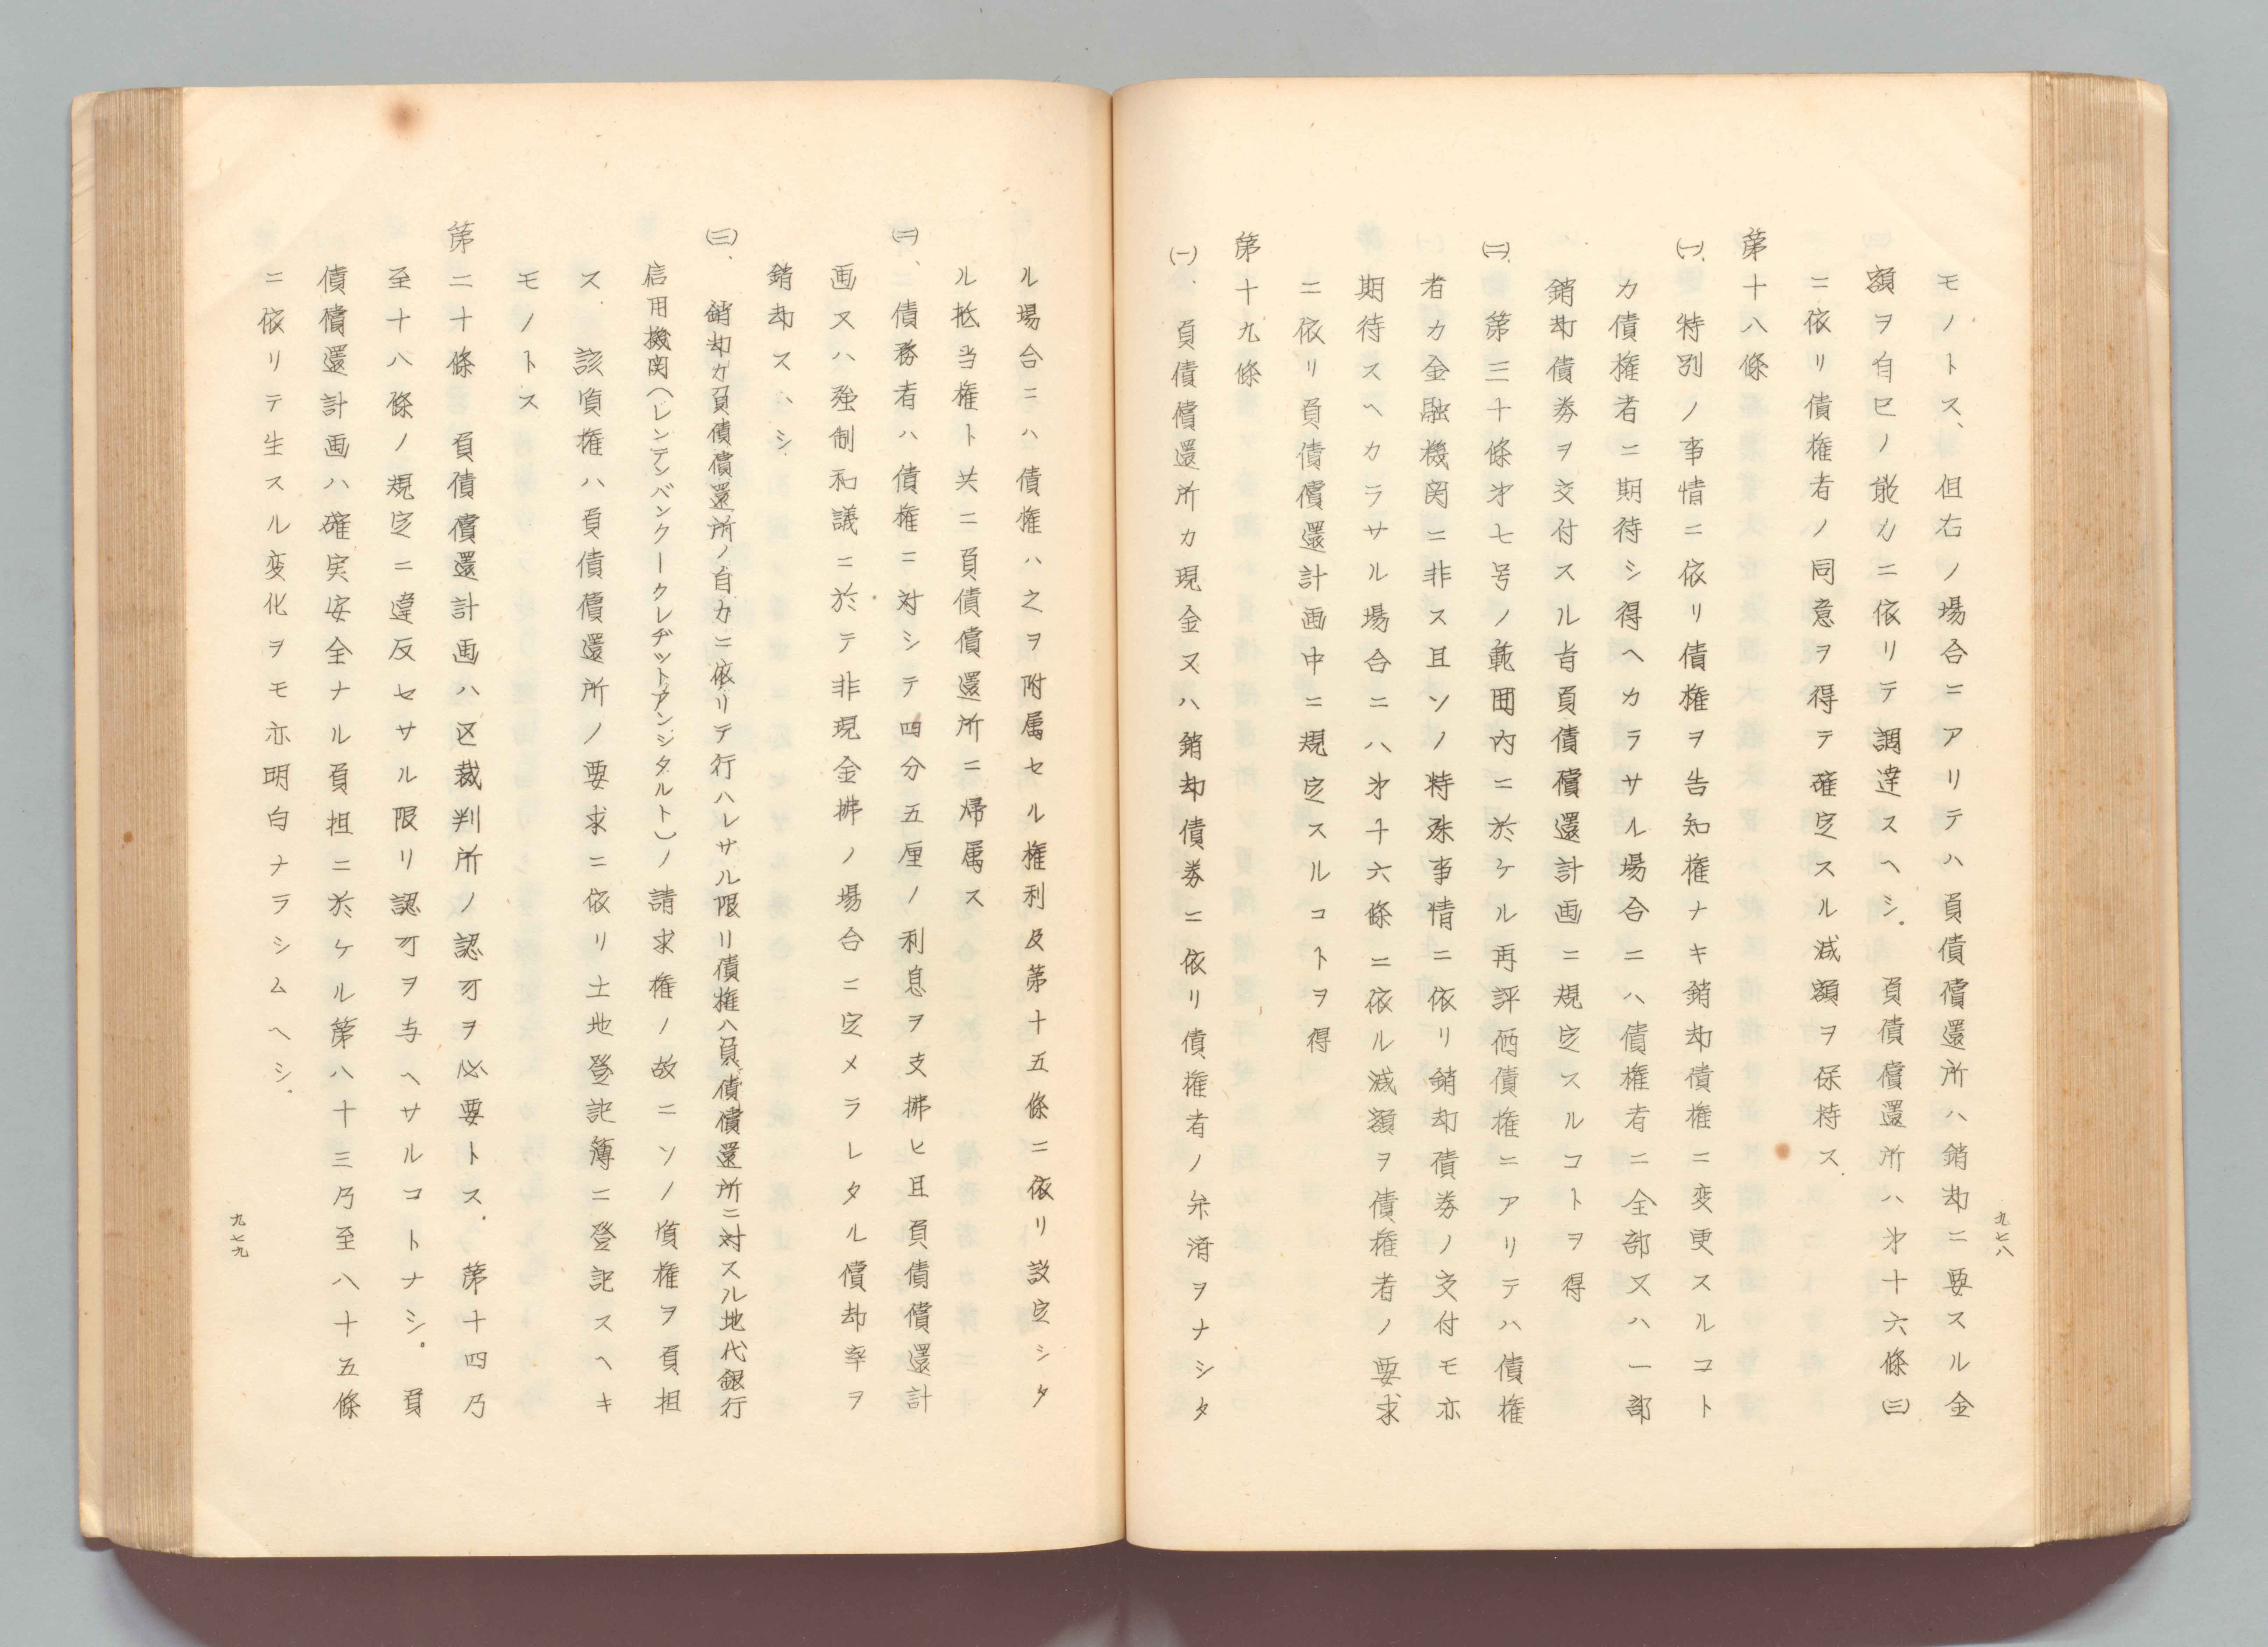 モノトス、但右ノ場合ニアリテハ負債償還所ハ銷却ニ要スル金
額ヲ自己ノ能力ニ依リテ調達スヘシ。負債償還所ハ才十六條㈢
ニ依リ債権者ノ同意ヲ得テ確定スル減額ヲ保持ス.
第十八條
㈠.特別ノ事情ニ依リ債権ヲ告知権ナキ銷却債権ニ変更スルコト
カ債権者ニ期待シ得ヘカラサル場合ニハ債権者ニ全部又ハ一部
銷却債券ヲ交付スル旨負債償還計画ニ規定スルコトヲ得
㈡.第三十條才七号ノ範囲内ニ於ケル再評価債権ニアリテハ債権
者カ金融機関ニ非ス且ソノ特殊事情ニ依リ銷却債券ノ交付モ亦
期待スヘカラサル場合ニハ才十六條ニ依ル減額ヲ債権者ノ要求
ニ依リ負債償還計画中ニ規定スルコトヲ得
第十九條
㈠.負債償還所カ現金又ハ銷却債券ニ依リ債権者ノ弁済ヲナシタ
九七八
ル場合ニハ債権ハ之ヲ附属セル権利及第十五條ニ依リ設定シタ
ル抵当権ト共ニ負債償還所ニ帰属ス
㈡、債務者ハ債権ニ対シテ四分五厘ノ利息ヲ支拂ヒ且負債償還計
画又ハ強制和議ニ於テ非現金拂ノ場合ニ定メラレタル償却率ヲ
銷却スヽシ.
㈢.銷却カ負債償還所ノ自力ニ依リテ行ハレサル限リ債権ハ負債償還所ニ対スル地代銀行
信用機関(レンテンバンクークレヂットアンシタルト)ノ請求権ノ故ニソノ債権ヲ負担
ス.該債権ハ負債償還所ノ要求ニ依リ土地登記簿ニ登記スヘキ
モノトス
第二十條 負債償還計画ハ区裁判所ノ認可ヲ必要トス.第十四乃
至十八條ノ規定ニ違反セサル限リ認可ヲ与ヘサルコトナシ。負
債償還計画ハ確実安全ナル負担ニ於ケル第八十三乃至八十五條
ニ依リテ生スル変化ヲモ亦明白ナラシムヘシ.
九七九